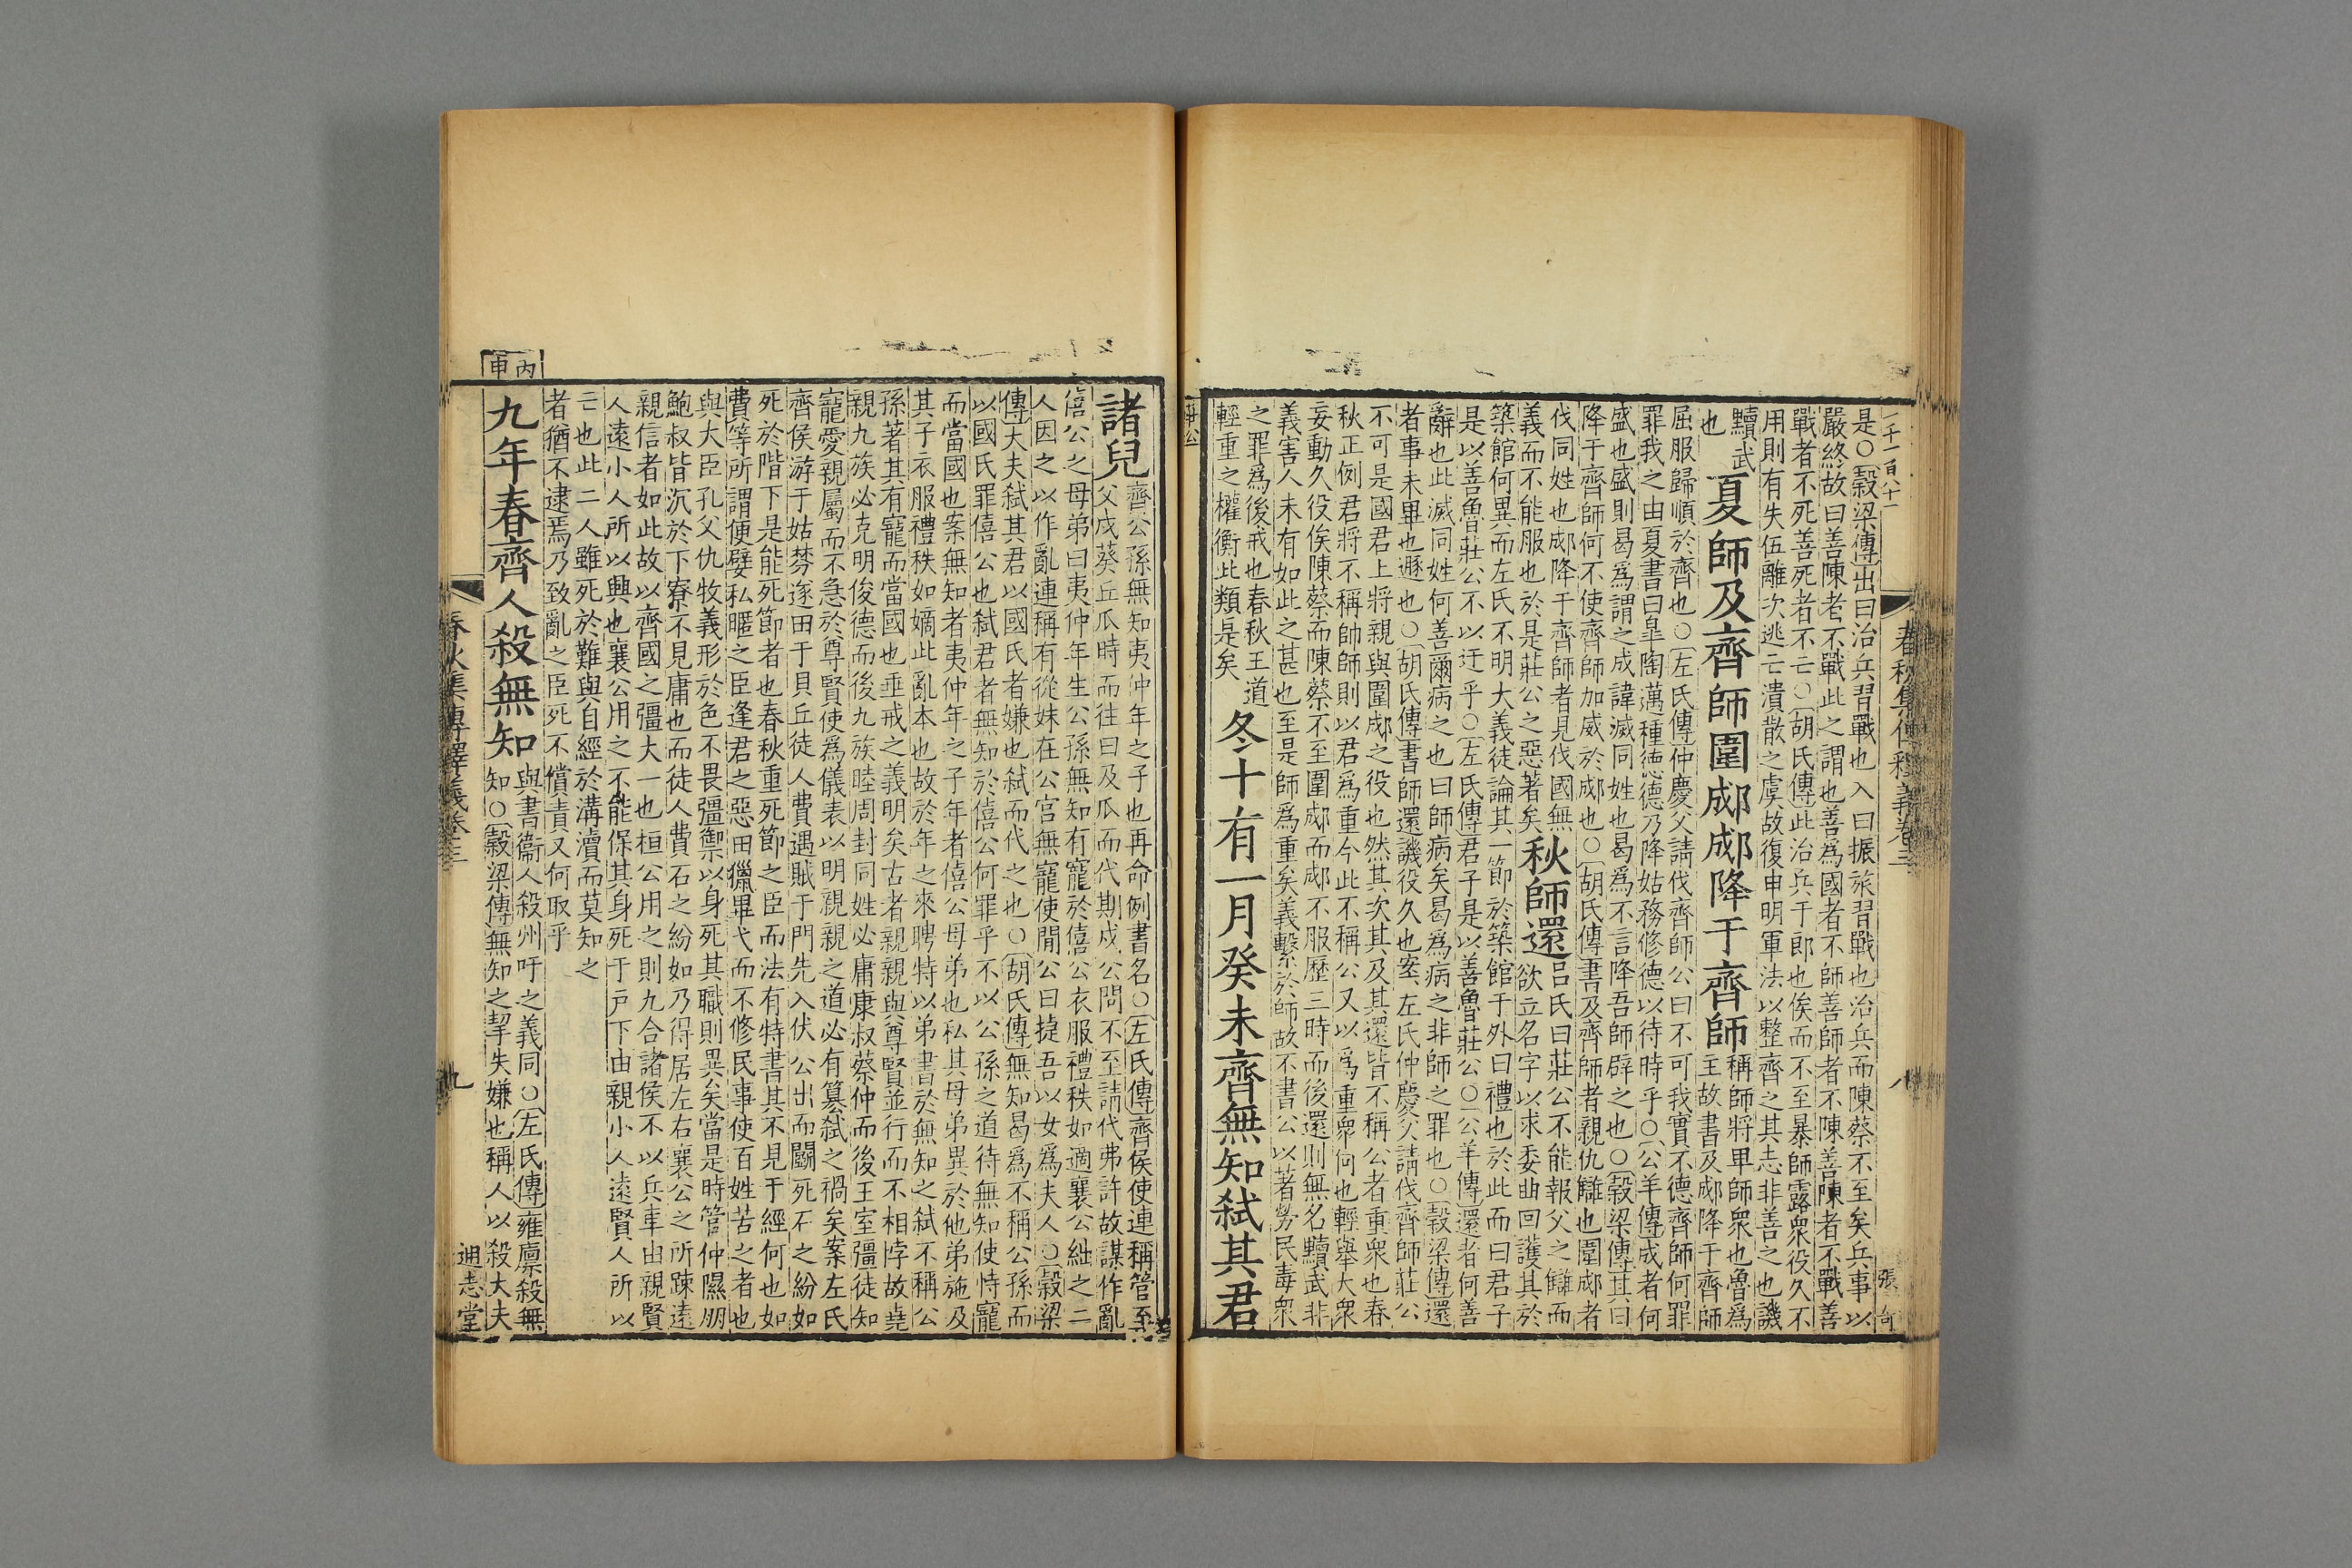 二千一百八十一
春秋集傳釋義卷三
八
張奇
是○穀梁傳出曰治兵習戰也入曰振旅習戰也治兵而陳蔡不至矣兵事以
嚴終故曰善陳者不戰此之謂也善爲國者不師善師者不陳善陳者不戰善
戰者不死善死者不亡○胡氏傳此治兵于郎也俟而不至暴師露衆役久不
用則有失伍離次逃亡潰散之虞故復申明軍法以整齊之其志非善之也譏
黷武
也
夏師及齊師圍郕郕降于齊師
稱師將卑師衆也魯爲
主故書及郕降于齊師
屈服歸順於齊也○左氏傳仲慶父請伐齊師公曰不可我實不德齊師何罪
罪我之由夏書曰皐陶邁種德德乃降姑務修德以待時乎○公羊傳成者何
盛也盛則曷爲謂之成諱滅同姓也曷爲不言降吾師辟之也○穀梁傳其曰
降于齊師何不使齊師加威於郕也○胡氏傳書及齊師者親仇讎也圍郕者
伐同姓也郕降于齊師者見伐國無
義而不能服也於是莊公之惡著矣
秋師還
呂氏曰莊公不能報父之讎而
欲立名字以求委曲回護其於
築館何異而左氏不明大義徒論其一節於築館于外曰禮也於此而曰君子
是以善魯莊公不以迂乎○左氏傳君子是以善魯莊公○公羊傳還者何善
辭也此滅同姓何善爾病之也曰師病矣曷爲病之非師之罪也○穀梁傳還
者事未畢也遯也○胡氏傳書師還譏役久也案左氏仲慶父請伐齊師莊公
不可是國君上將親與圍郕之役也然其次其及其還皆不稱公者重衆也春
秋正例君將不稱帥師則以君爲重今此不稱公又以爲重衆何也輕舉大衆
妄動久役俟陳蔡而陳蔡不至圍郕而郕不服歷三時而後還則無名黷武非
義害人未有如此之甚也至是師爲重矣義繫於師故不書公以著勞民毒衆
之罪爲後戒也春秋王道
輕重之權衡此類是矣
冬十有一月癸未齊無知弒其君
諸兒
齊公孫無知夷仲年之子也再命例書名○左氏傳齊侯使連稱管至
父戍葵丘瓜時而往曰及瓜而代期戍公問不至請代弗許故謀作亂
僖公之母弟曰夷仲年生公孫無知有寵於僖公衣服禮秩如適襄公絀之二
人因之以作亂連稱有從妹在公宮無寵使閒公曰捷吾以女爲夫人○穀梁
傳大夫弒其君以國氏者嫌也弒而代之也○胡氏傳無知曷爲不稱公孫而
以國氏罪僖公也弒君者無知於僖公何罪乎不以公孫之道待無知使恃寵
而當國也案無知者夷仲年之子年者僖公母弟也私其母弟異於他弟施及
其子衣服禮秩如嫡此亂本也故於年之來聘特以弟書於無知之弒不稱公
孫著其有寵而當國也垂戒之義明矣古者親親與尊賢並行而不相悖故堯
親九族必克明俊德而後九族睦周封同姓必庸康叔蔡仲而後王室彊徒知
寵愛親屬而不急於尊賢使爲儀表以明親親之道必有簒弒之禍矣案左氏
齊侯游于姑棼逐田于貝丘徒人費遇賊于門先入伏公出而鬬死石之紛如
死於階下是能死節者也春秋重死節之臣而法有特書其不見于經何也如
費等所謂便嬖私暱之臣逢君之惡田獵畢弋而不修民事使百姓苦之者也
與大臣孔父仇牧義形於色不畏彊禦以身死其職則異矣當是時管仲隰朋
鮑叔皆沉於下寮不見庸也而徒人費石之紛如乃得居左右襄公之所踈遠
親信者如此故以齊國之彊大一也桓公用之則九合諸侯不以兵車由親賢
人遠小人所以興也襄公用之不能保其身死于戶下由親小人遠賢人所以
亡也此二人雖死於難與自經於溝瀆而莫知之
者猶不逮焉乃致亂之臣死不償責又何取乎
丙申
九年春齊人殺無知
與書衞人殺州吁之義同○左氏傳雍廩殺無
知○穀梁傳無知之挈失嫌也稱人以殺大夫
春秋集傳釋義卷三
九
通志堂